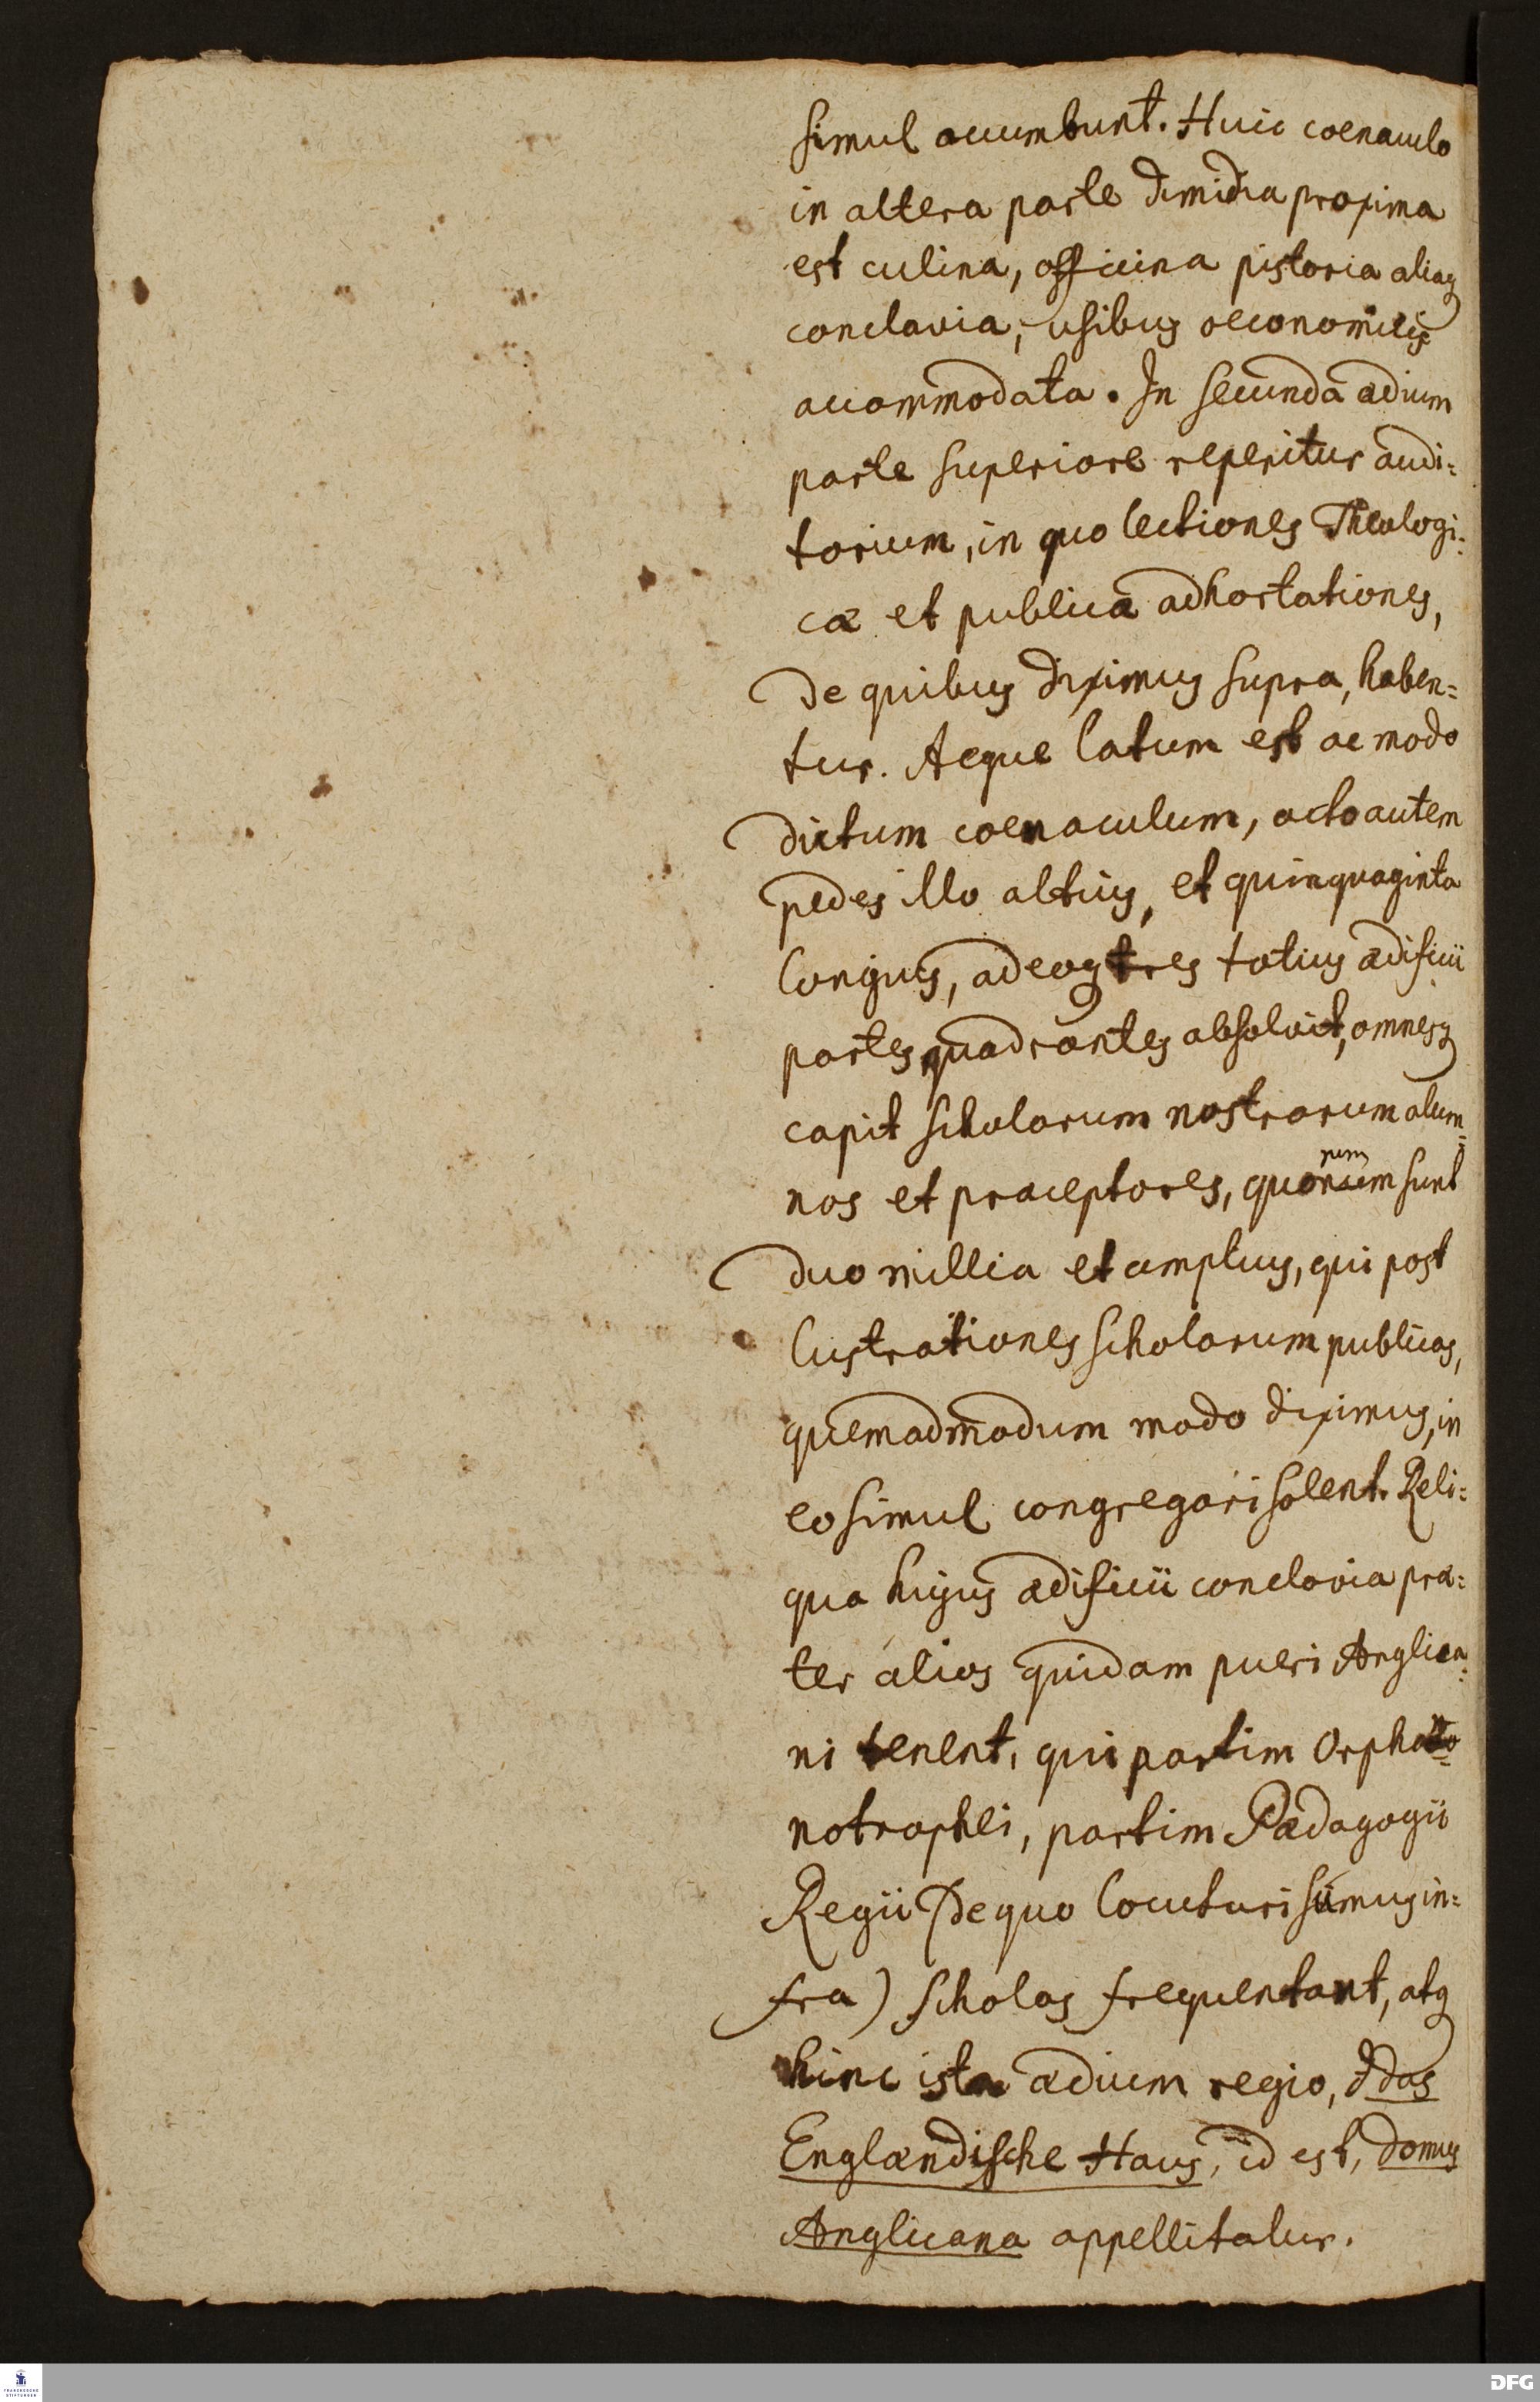 simul accumbunt. Huic coenaculo
in altera parte dimidia proxima
est culina, officina pistoria aliaq
conclavia, usibus oeconomicis
accommodata. In secunda ædium
parte superiore reperitur audi=
torium, in quo lectiones Theologi=
cæ et publicæ adhortationes,
de quibus diximus supra, haben=
tur. Aeque latum est ac modo
dictum coenaculum, octo autem
pedes illo altius, et quinquaginta
longius, adeoq tres totius ædificii
partes quadrantes absolvit, omnesq
capit scholarum nostrarum alum=
nos et præceptores, quorum sunt
duo millia et amplius, qui post
lustrationes scholarum publicas,
quemadmodum modo diximus, in
eo simul congregari solent. Reli=
qua hujus ædificii conclavia præ=
ter alios quidam pueri Anglica=
ni tenent, qui partim Orpha=
notrophei, partim Pædagogii
Regii (de quo locuturi sumus in=
fra) scholas frequentant, atq
hinc ista ædium regio, das
Englændische Haus, id est, domus
Anglicana appellitatur.
FRANCKESCHE
STIFTUNGEN
DFG